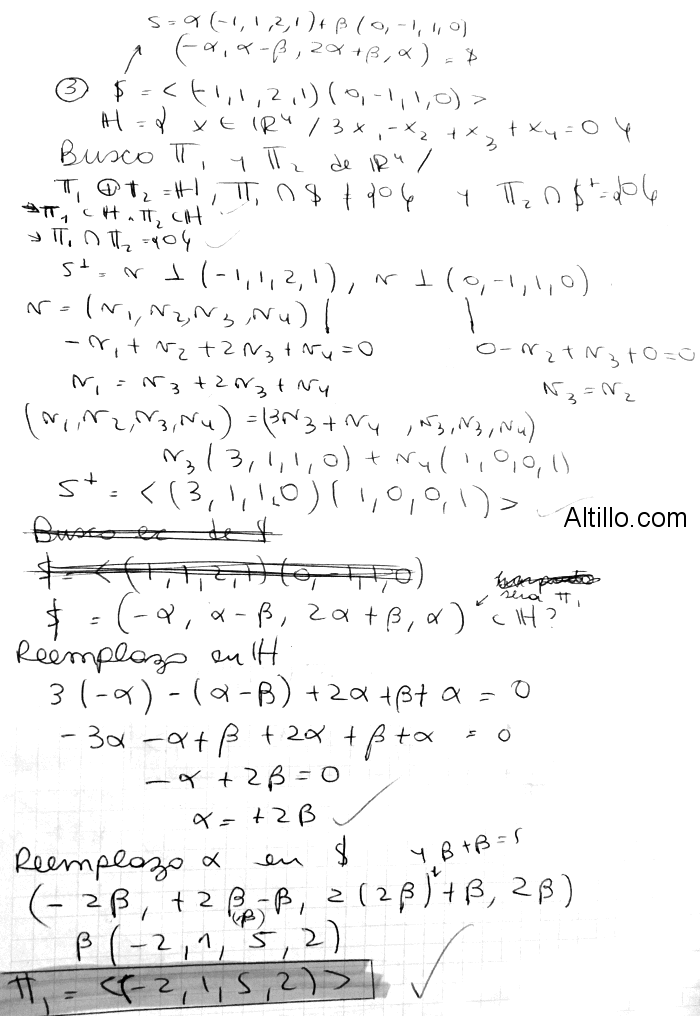 S = α(-1,1,2,1) + β(0,-1,1,0)
(-α, α-β, 2α+β, α) = $
③ $ = <(-1,1,2,1)(0,-1,1,0)>
H = { x ∈ IR⁴ / 3x₁ - x₂ + x₃ + x₄ = 0 }
Busco π₁ y π₂ de IR⁴ /
π₁ ⊕ π₂ = H, π₁ ∩ $ ≠ {0} y π₂ ∩ $⊥ = {0}
→ π₁ ⊂ H ∧ π₂ ⊂ H
→ π₁ ∩ π₂ = {0} ✓
S⊥ = v ⊥ (-1,1,2,1), v ⊥ (0,-1,1,0)
v = (v₁, v₂, v₃, v₄)
-v₁ + v₂ + 2v₃ + v₄ = 0 0 - v₂ + v₃ + 0 = 0
v₁ = v₃ + 2v₃ + v₄ v₃ = v₂
(v₁, v₂, v₃, v₄) = (3v₃ + v₄, v₃, v₃, v₄)
v₃(3,1,1,0) + v₄(1,0,0,1)
S⊥ = <(3,1,1,0)(1,0,0,1)> ✓
Altillo.com
Busco ec de $
$ = <(1,1,2,1)(0,-1,1,0)
sera π₁
$ = (-α, α-β, 2α+β, α) ⊂ H?
Reemplazo en H
3(-α) - (α-β) + 2α + β + α = 0
-3α - α + β + 2α + β + α = 0
-α + 2β = 0
α = +2β ✓
Reemplazo α en $ 4β+β=5
(-2β, +2β-β, 2(2β)+β, 2β)
(β)
β(-2,1,5,2)
π₁ = <(-2,1,5,2)> ✓